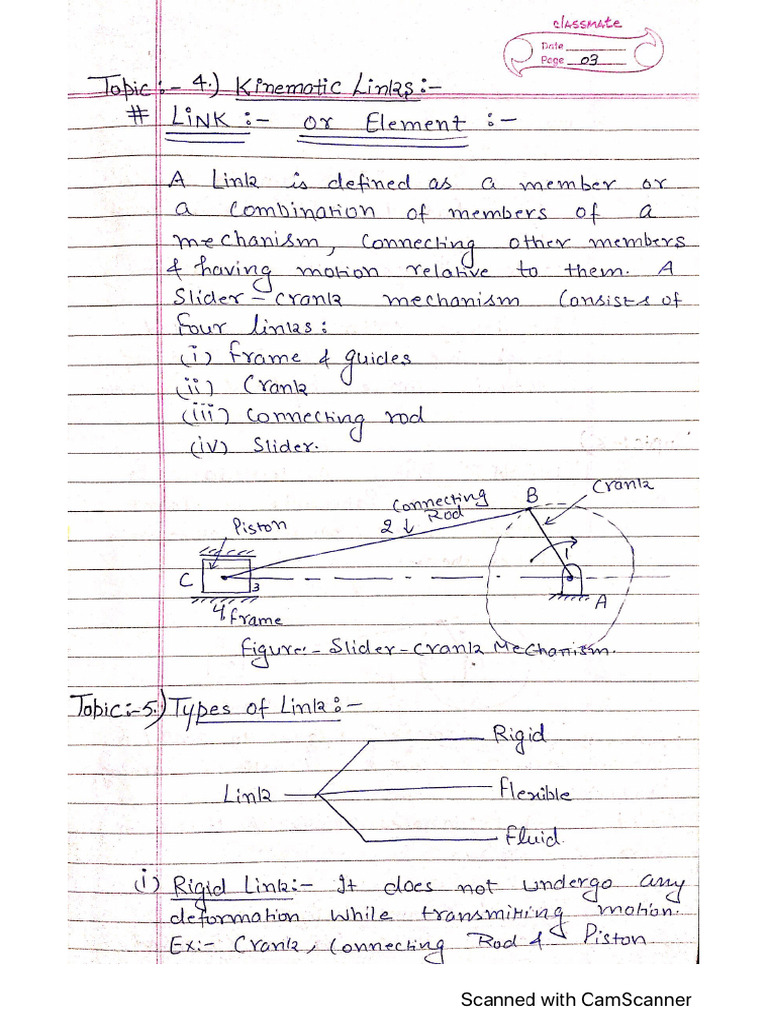 classmate
Date
Page 03
Topic:- 4.) Kinematic Links:-
# Link :- or Element :-
A Link is defined as a member or
a combination of members of a
mechanism, connecting other members
& having motion relative to them. A
Slider-crank mechanism consists of
four links:
(i) frame & guides
(ii) Crank
(iii) connecting rod
(iv) Slider.
Connecting Rod
2
B
Crank
Piston
1
C
3
4 frame
A
figure:- Slider-crank Mechanism.
Topic:-5.) Types of Link:-
Rigid
Link
flexible
fluid.
(i) Rigid Link:- It does not undergo any
deformation while transmitting motion.
Ex:- Crank, Connecting Rod & Piston
Scanned with CamScanner